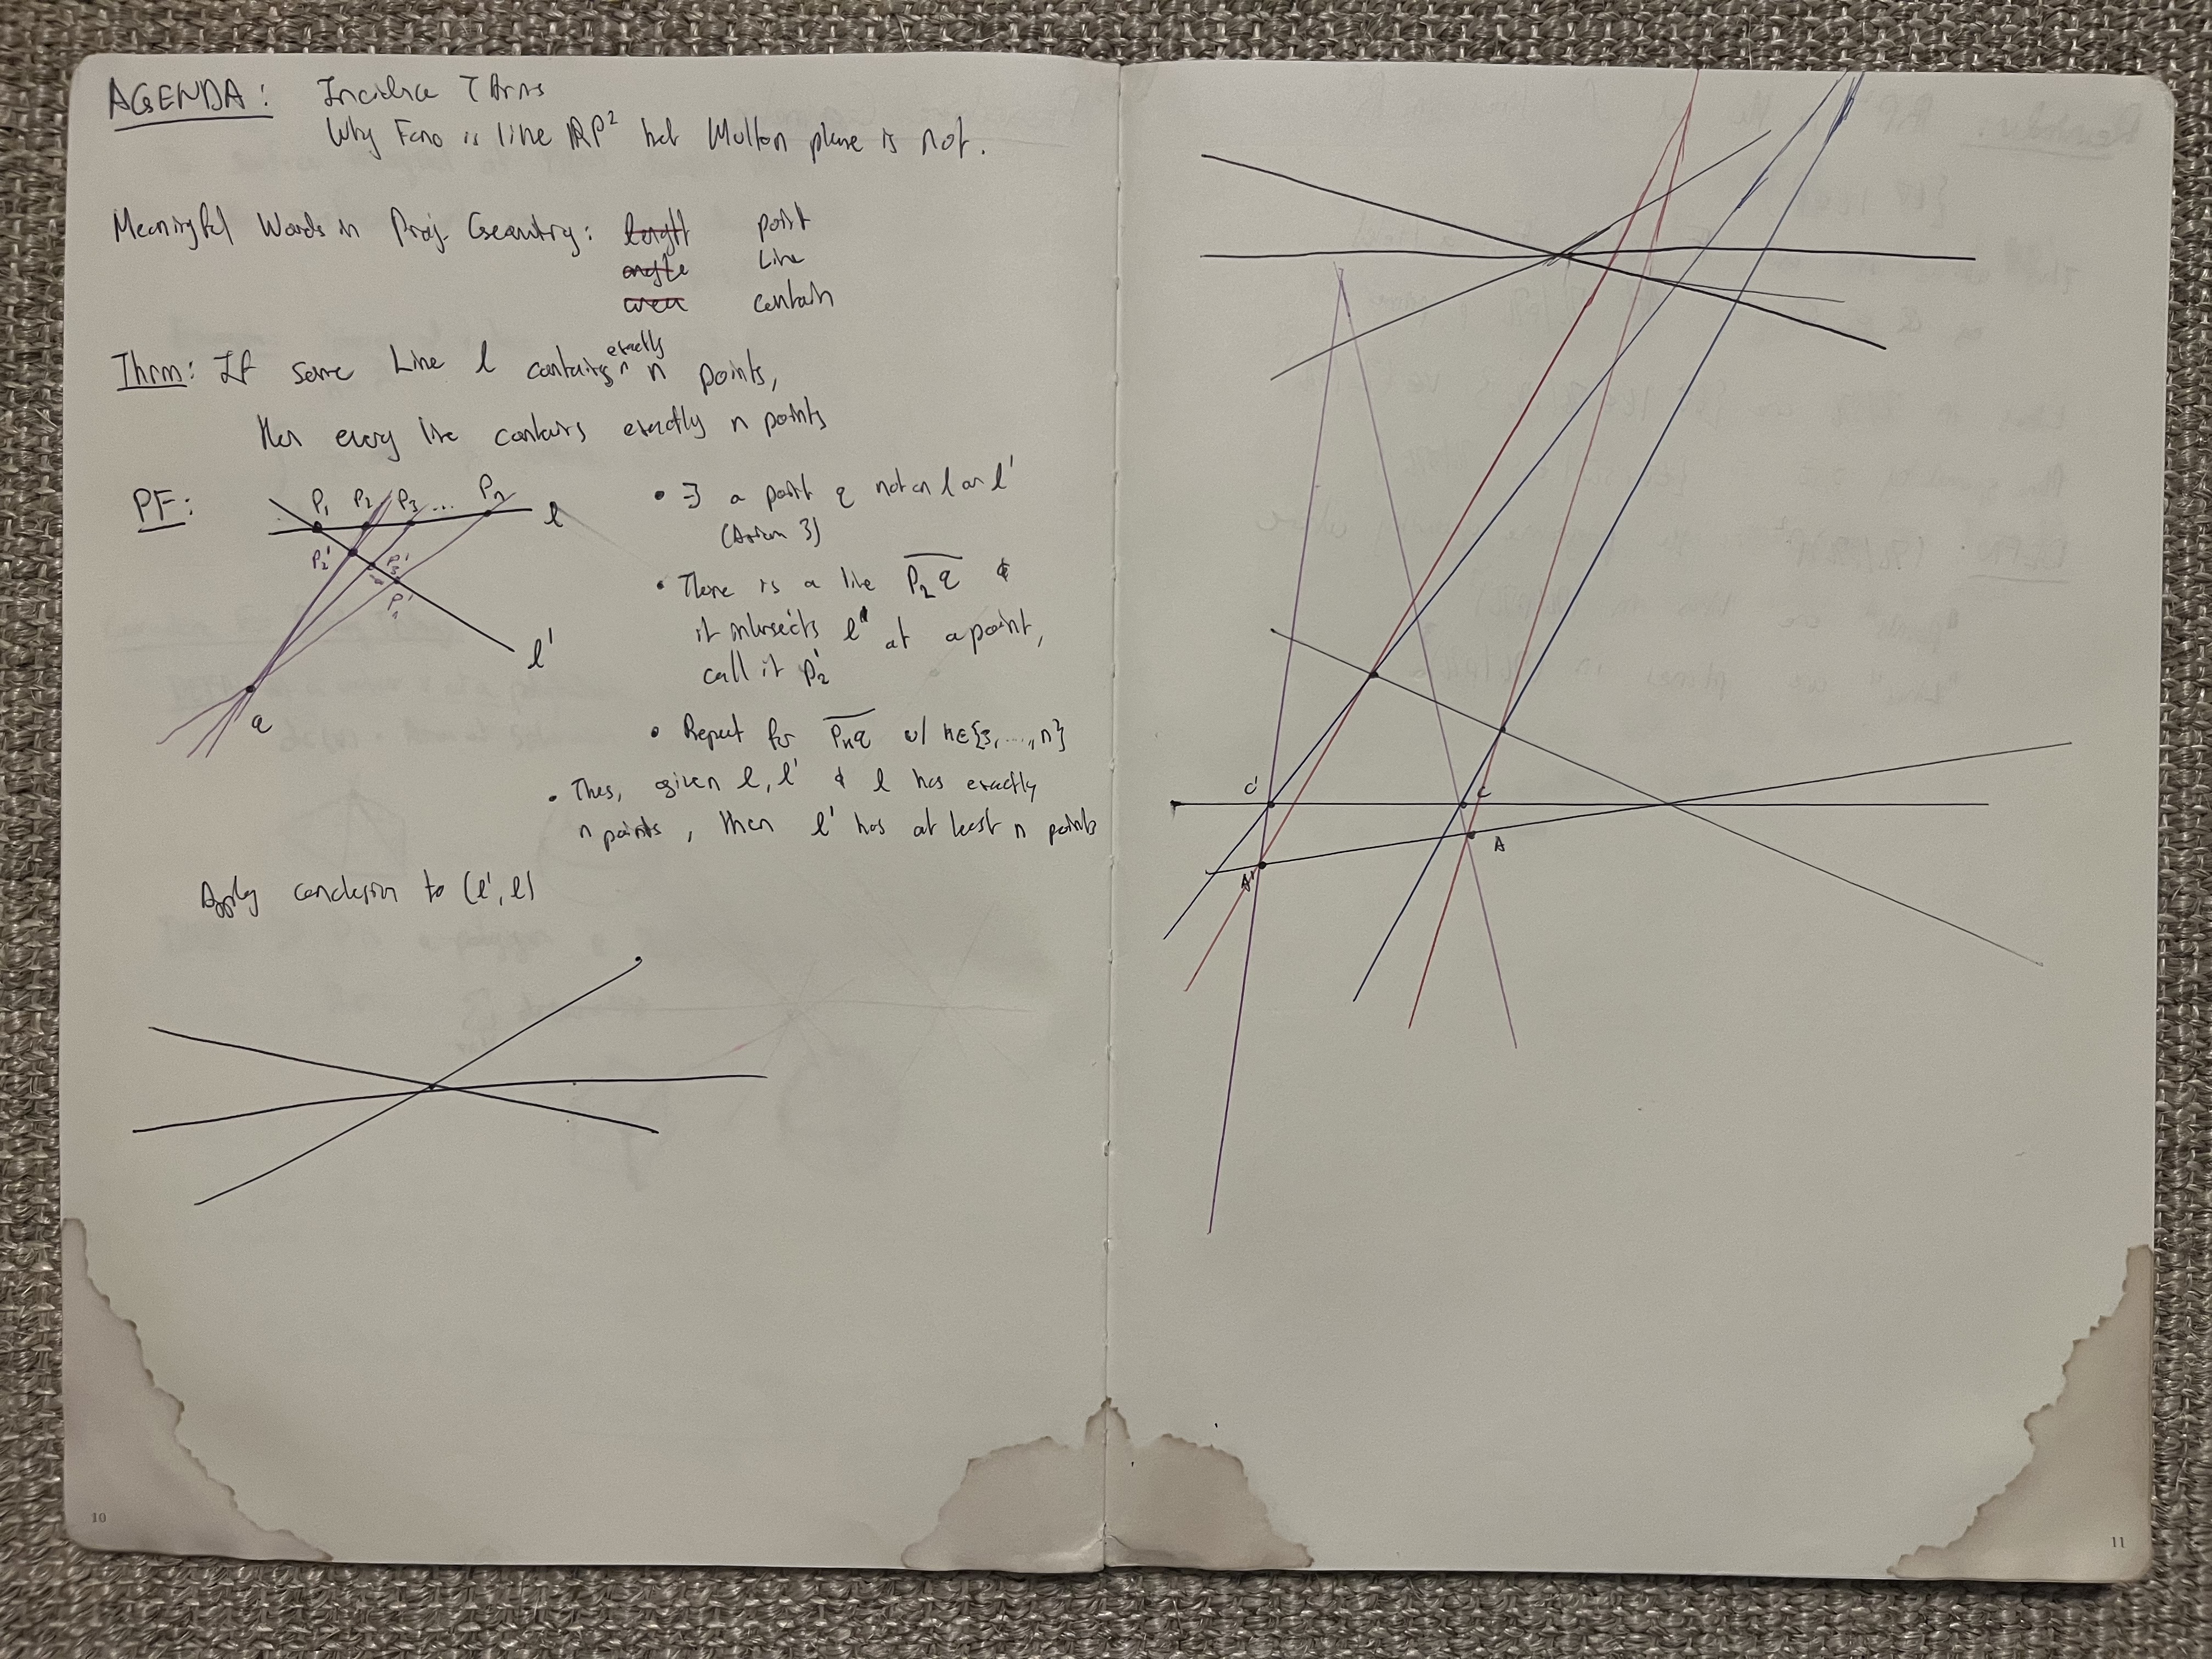 AGENDA: Incidence Thms
Why Fano is like RP² but Moulton plane is not.
Meaningful Words in Proj. Geometry: length point
angle line
area contain
Thm: If some line l contains exactly n points,
then every line contains exactly n points
PF:
P₁ P₂ P₃ ... Pₙ l
P₂'
q
l'
• ∃ a point q not on l or l'
(Axiom 3)
• There is a line P₂q &
it intersects l' at a point,
call it P₂'
• Repeat for Pₙq w/ n∈{3,...,n}
• Thus, given l, l' & l has exactly
n points, then l' has at least n points
Apply conclusion to (l', l)
10
A'
C'
A
C
11